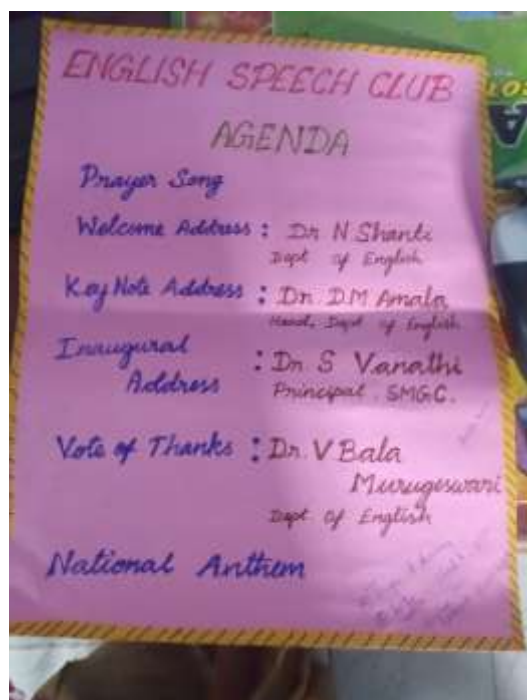 ENGLISH SPEECH CLUB
AGENDA
Prayer Song
Welcome Address : Dr N Shanti
Dept of English
Key Note Address : Dr. D.M Amala
Head, Dept of English
Inaugural : Dr S Vanathi
Address Principal. SMGC.
Vote of Thanks : Dr. V Bala
Murugeswari
Dept Of English
National Anthem